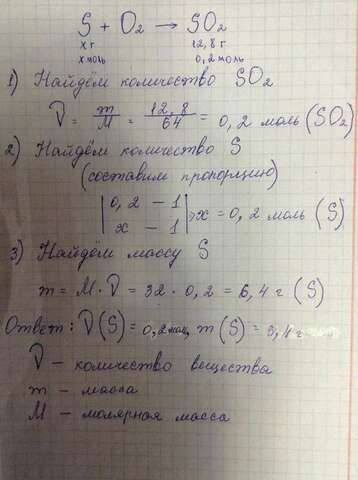 S + O₂ → SO₂
x г 12,8 г
x моль 0,2 моль
1) Найдём количество SO₂
ν = m/M = 12,8/64 = 0,2 моль (SO₂)
2) Найдём количество S
(составим пропорцию)
|0,2 – 1|
|x – 1| x = 0,2 моль (S)
3) Найдём массу S
m = M · ν = 32 · 0,2 = 6,4 г (S)
Ответ: ν(S) = 0,2 моль, m(S) = 3,4 г
ν – количество вещества
m – масса
M – молярная масса